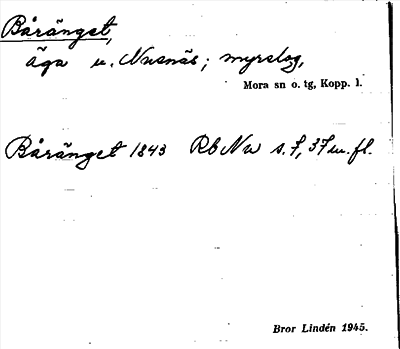 Båränget,
äga u. Nusnäs; myrslog,
Mora sn o. tg, Kopp. l.
Båränget 1843 Rb Nw s. 7, 37 m. fl.
Bror Lindén 1945.